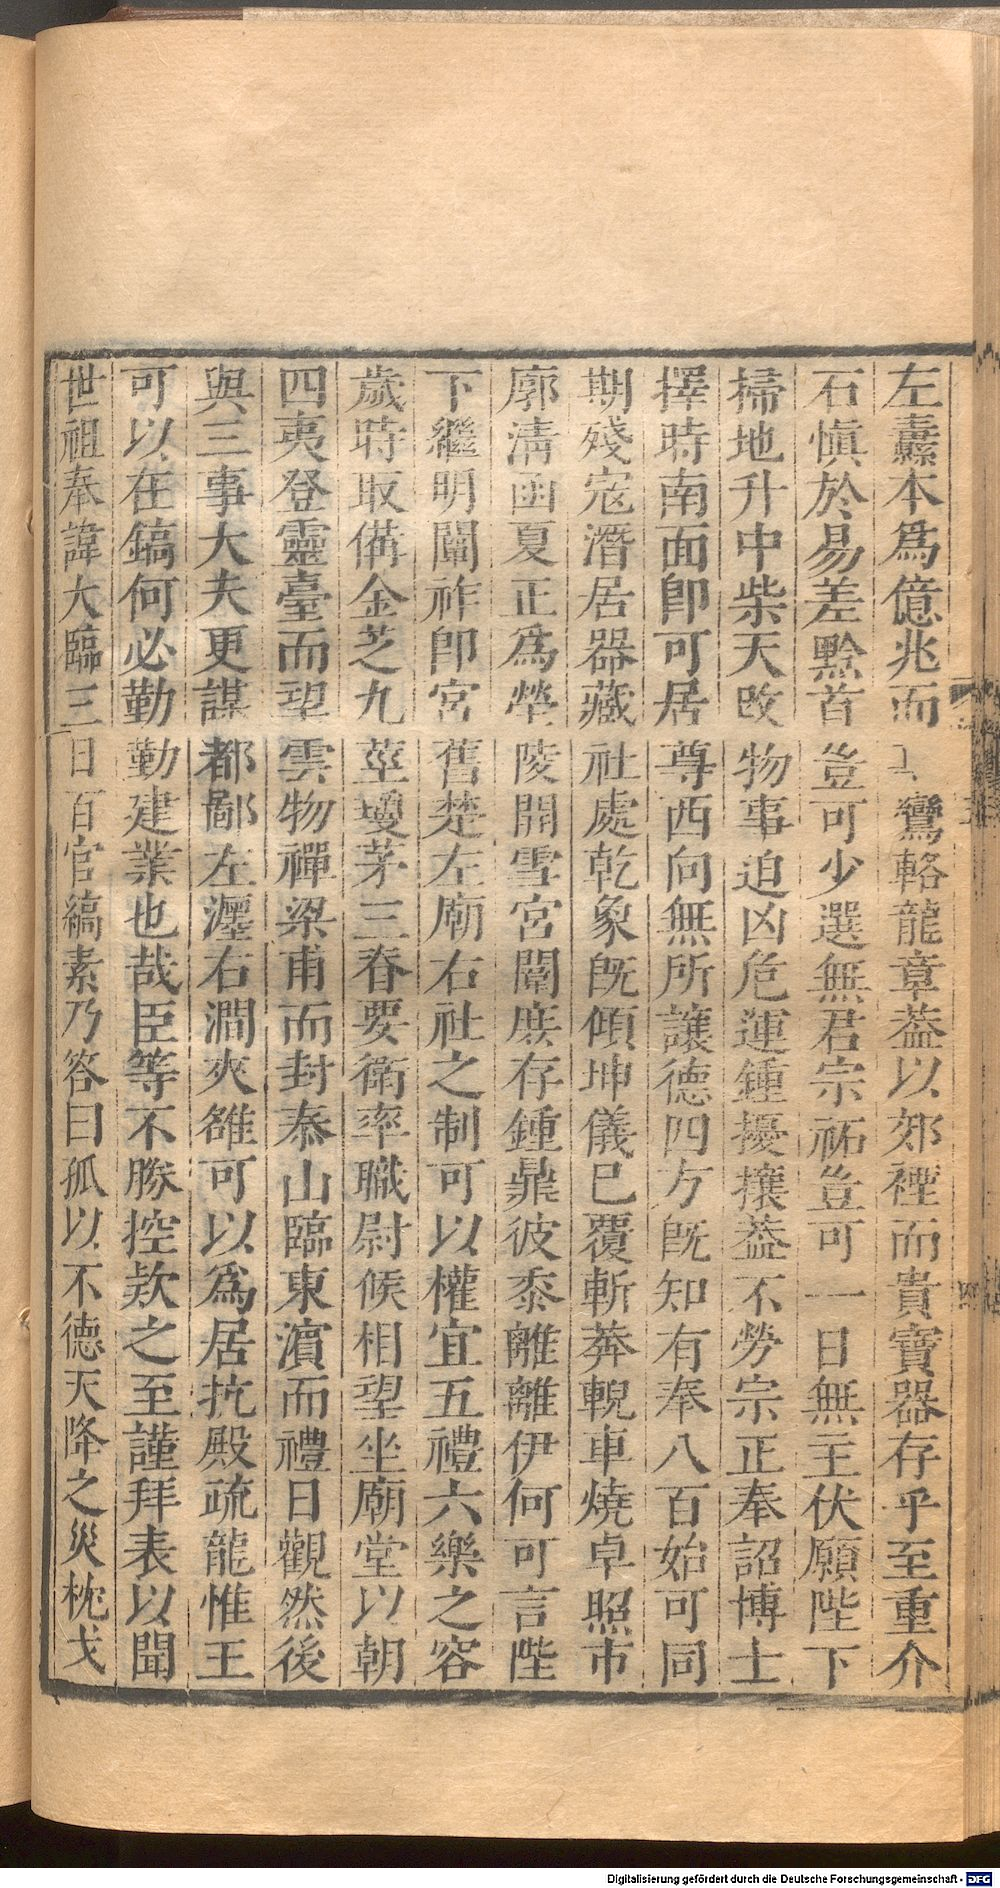 左纛本爲億兆而上鸞輅龍章葢以郊禋而貴寶器存乎至重介
石愼於易差黔首豈可少選無君宗祏豈可一日無主伏願陛下
掃地升中柴天改物事迫凶危運鍾擾攘葢不勞宗正奉詔博士
擇時南面卽可居尊西向無所讓德四方旣知有奉八百始可同
期殘寇潛居器藏社處乾象旣傾坤儀已覆斬莽輗車燒卓照市
廓淸函夏正爲塋陵開雪宮闈庶存鍾鼎彼黍離離伊何可言陛
下繼明闡祚卽宮舊楚左廟右社之制可以權宜五禮六樂之容
歲時取備金芝九莖瓊茅三春要衛率職尉候相望坐廟堂以朝
四夷登靈臺而望雲物禪梁甫而封泰山臨東濵而禮日觀然後
與三事大夫更謀都鄙左瀍右澗夾雒可以爲居抗殿疏龍惟王
可以在鎬何必勤勤建業也哉臣等不勝控欵之至謹拜表以聞
世祖奉諱大臨三日百官縞素乃答曰孤以不德天降之災枕戈
Digitalisierung gefördert durch die Deutsche Forschungsgemeinschaft - DFG